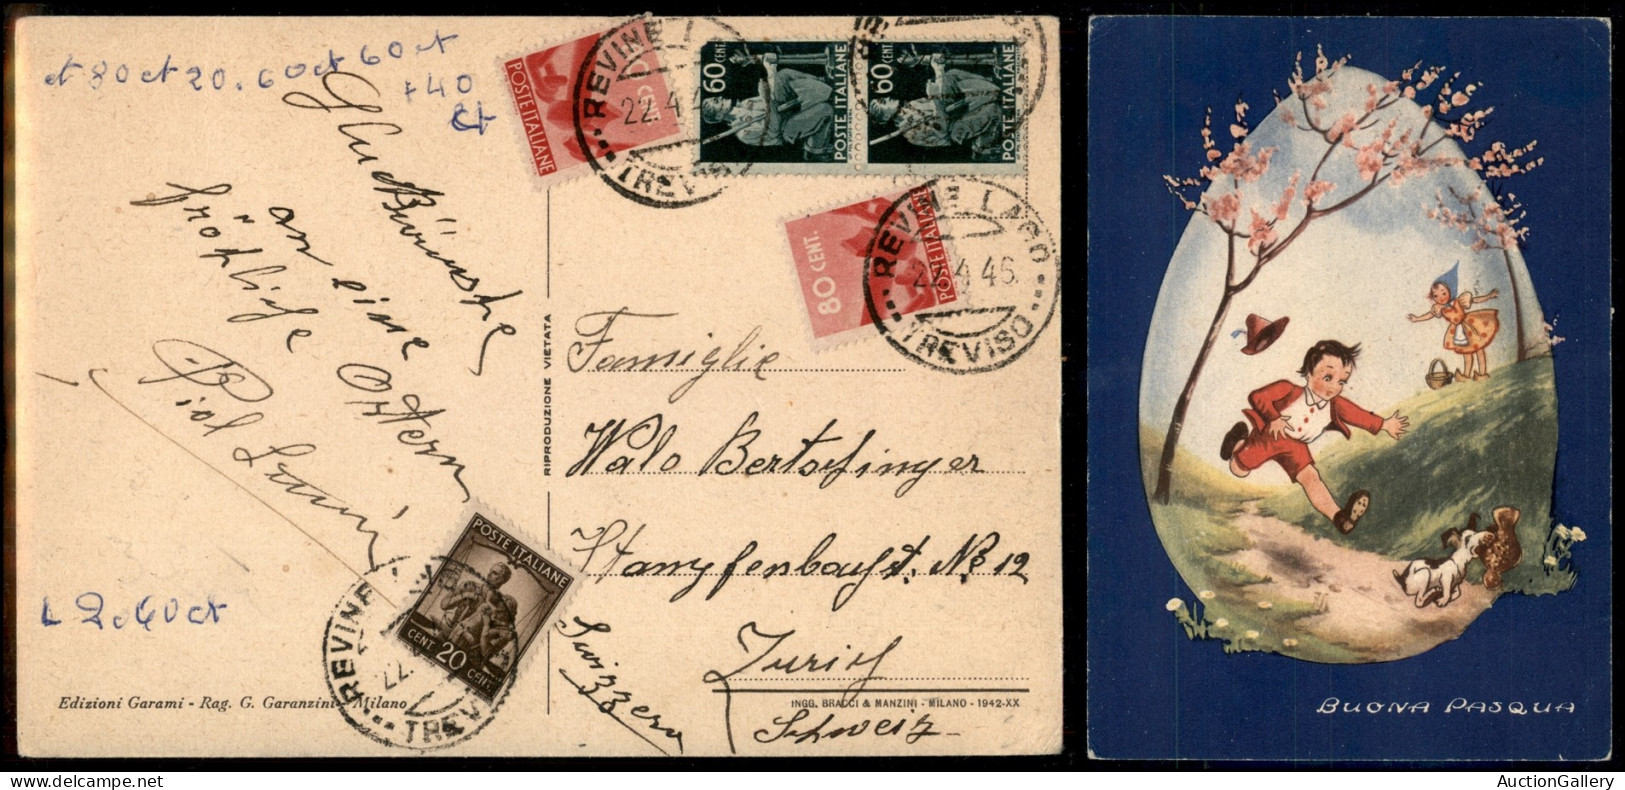 ct 80 ct 20. 60 ct 60 ct
+ 40
ct
Glückwünsche
an eine
fröhliche Ostern
L 2.60 ct
Edizioni Garami - Rag. G. Garanzini - Milano
RIPRODUZIONE VIETATA
POSTE ITALIANE
REVINE LAGO
22.4.46
TREVISO
60 CENT.
POSTE ITALIANE
60 CENT.
POSTE ITALIANE
80 CENT.
POSTE ITALIANE
REVINE LAGO
22.4.46.
TREVISO
Famiglie
Walo Bertschinger
Stampfenbachst. No 12
Zurich
Svizzera
Schweiz
INGG. BRACCI & MANZINI - MILANO - 1942-XX
POSTE ITALIANE
CENT. 20 CENT.
REVINE
22
TREV
BUONA PASQUA
AuctionGallery